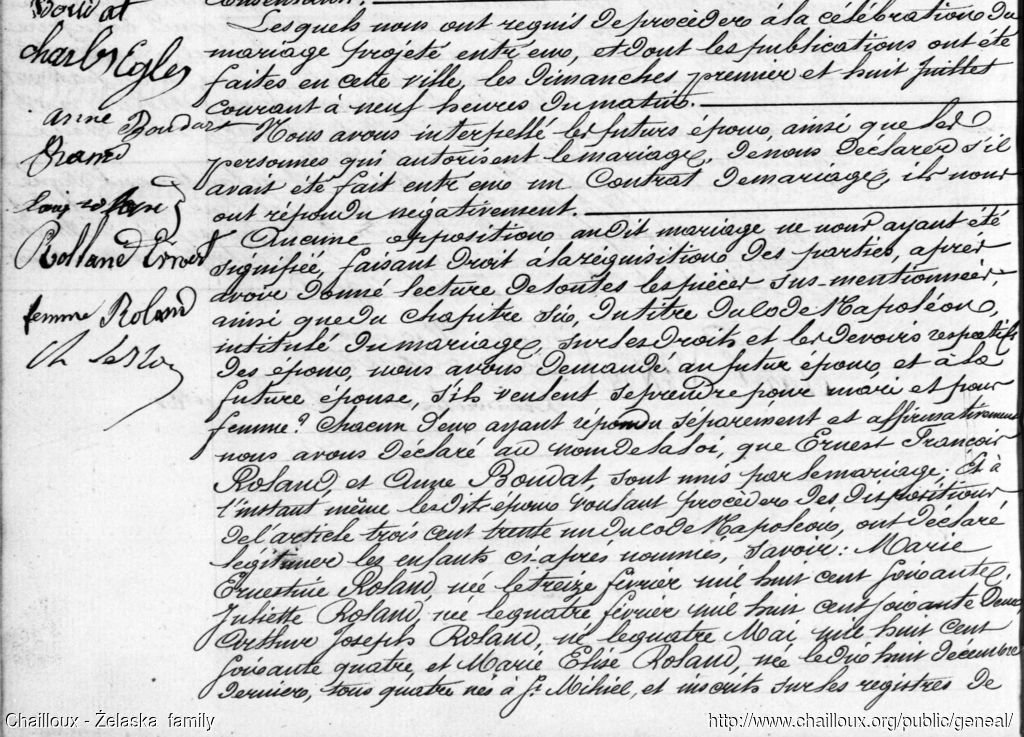 Boudat
Charles Egles
anne Boudat
femme Roland
consentation.
Lesquels nous ont requis de procéder à la célébration du
mariage projeté entr'eux, et dont les publications ont été
faites en cette ville, les Dimanches premier et huit Juillet
courant à neuf heures du matin.
Nous avons interpellé les futurs époux, ainsi que les
personnes qui autorisent le mariage, de nous déclarer s'il
avait été fait entr'eux un Contrat de mariage, ils nous
ont répondu négativement.
Aucune opposition au dit mariage ne nous ayant été
signifiée, faisant droit à la réquisition des parties, après
avoir donné lecture de toutes les pièces sus-mentionnées,
ainsi que du chapitre six, du titre du Code Napoléon,
intitulé du mariage, sur les droits et les devoirs respectifs
des époux, nous avons demandé au futur époux, et à la
future épouse, s'ils veulent se prendre pour mari et pour
femme? Chacun d'eux ayant répondu séparément et affirmativement
nous avons déclaré au nom de la loi, que Ernest François
Roland, et Anne Boudat, sont unis par le mariage; Et à
l'instant même les dit époux voulant procéder des dispositions
de l'article trois cent trente un du Code Napoléon, ont déclaré
légitimer les enfants ci-après nommés, savoir: Marie
Ernestine Roland, née le treize février mil huit cent soixante,
Juliette Roland, née le quatre février mil huit cent soixante deux,
Arthur Joseph Roland, né le quatre Mai mil huit cent
soixante quatre, et Marie Elise Roland, née le dix huit décembre
dernier, tous quatre nés à St. Mihiel, et inscrits sur les registres de
Chailloux - Želaska family
http://www.chailloux.org/public/geneal/